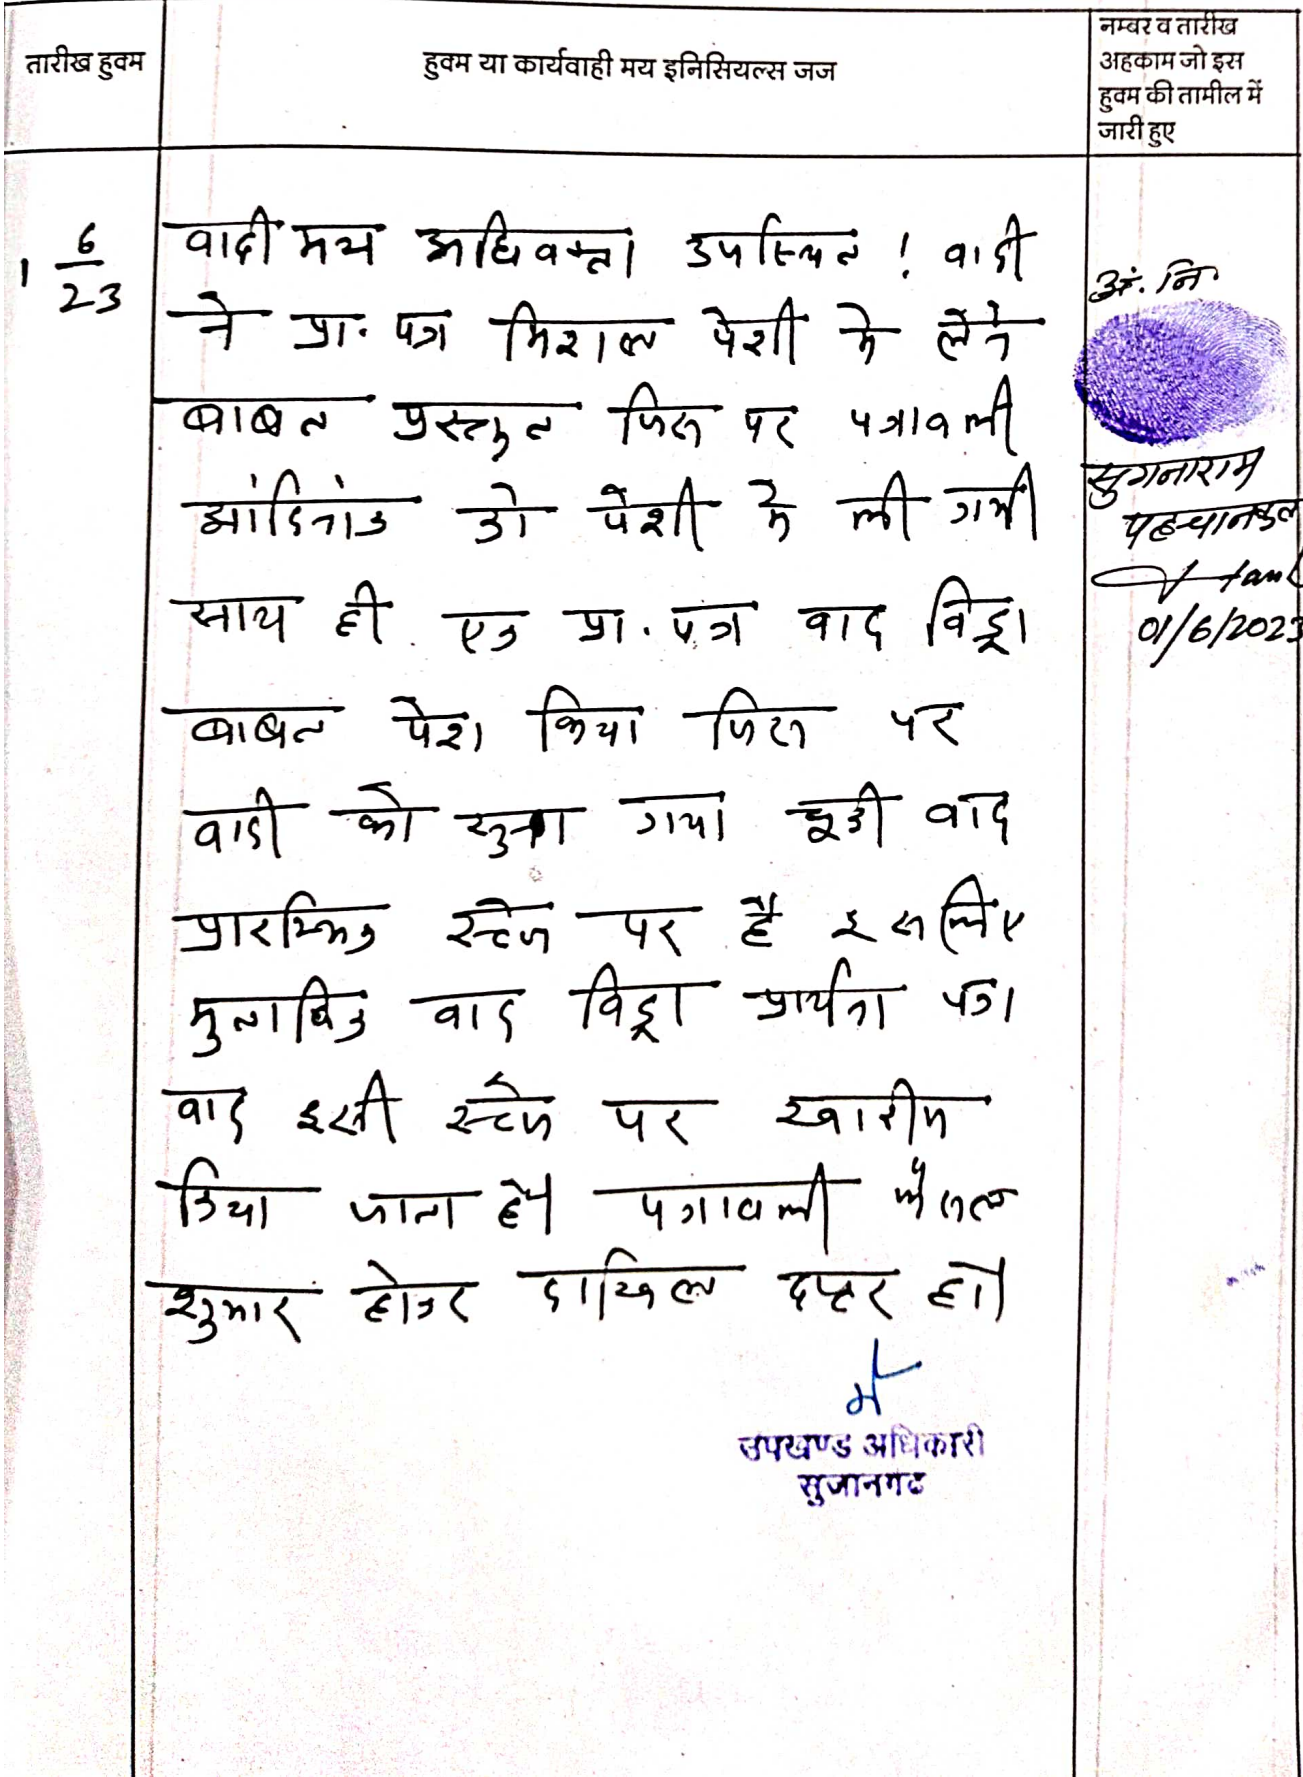 तारीख हुक्म
हुक्म या कार्यवाही मय इनिसियल्स जज
नम्बर व तारीख
अहकाम जो इस
हुक्म की तामील में
जारी हुए
1 6/23
वादी मय अधिवक्ता उपस्थित ! वादी
ने प्रा. पत्र मिशल पेशी मे लेने
बाबत प्रस्तुत जिस पर पत्रावली
को पेशी मे ली गयी
साथ ही एक प्रा. पत्र वाद विड्रा
बाबत पेश किया जिस पर
वादी को सुना गया चूकी वाद
प्रारम्भिक स्टेज पर है इसलिए
मुताबिक वाद विड्रा प्रार्थना पत्र
वाद इसी स्टेज पर खारीज
किया जाता है। पत्रावली फैसल
शुमार होकर दाखिल दफ्तर हो।
उपखण्ड अधिकारी
सुजानगढ
अं. नि.
सुगनाराम
पहचानकर्ता
01/6/2023